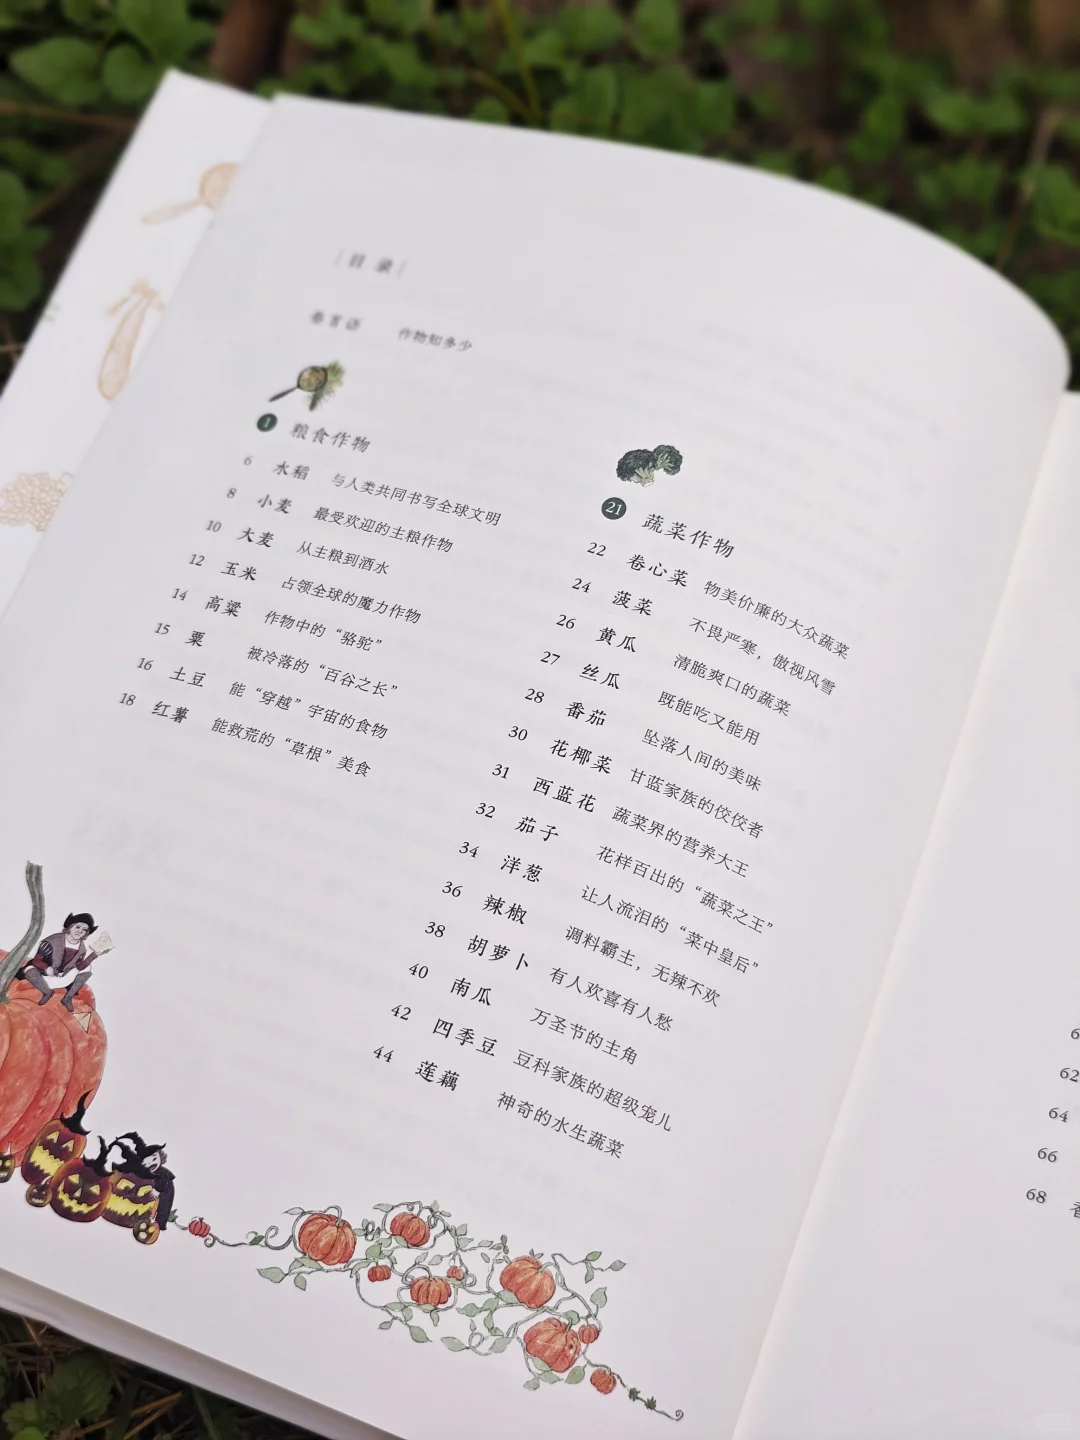 目录
卷首语 作物知多少
1 粮食作物
6 水稻 与人类共同书写全球文明
8 小麦 最受欢迎的主粮作物
10 大麦 从主粮到酒水
12 玉米 占领全球的魔力作物
14 高粱 作物中的“骆驼”
15 粟 被冷落的“百谷之长”
16 土豆 能“穿越”宇宙的食物
18 红薯 能救荒的“草根”美食
21 蔬菜作物
22 卷心菜 物美价廉的大众蔬菜
24 菠菜 不畏严寒，傲视风雪
26 黄瓜 清脆爽口的蔬菜
27 丝瓜 既能吃又能用
28 番茄 坠落人间的美味
30 花椰菜 甘蓝家族的佼佼者
31 西蓝花 蔬菜界的营养大王
32 茄子 花样百出的“蔬菜之王”
34 洋葱 让人流泪的“菜中皇后”
36 辣椒 调料霸主，无辣不欢
38 胡萝卜 有人欢喜有人愁
40 南瓜 万圣节的主角
42 四季豆 豆科家族的超级宠儿
44 莲藕 神奇的水生蔬菜
62
64
66
68